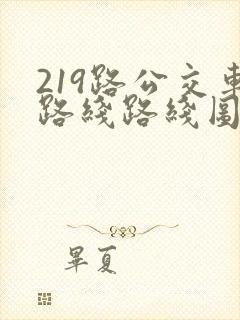 219路公交車
路綫路綫圖
畢夏